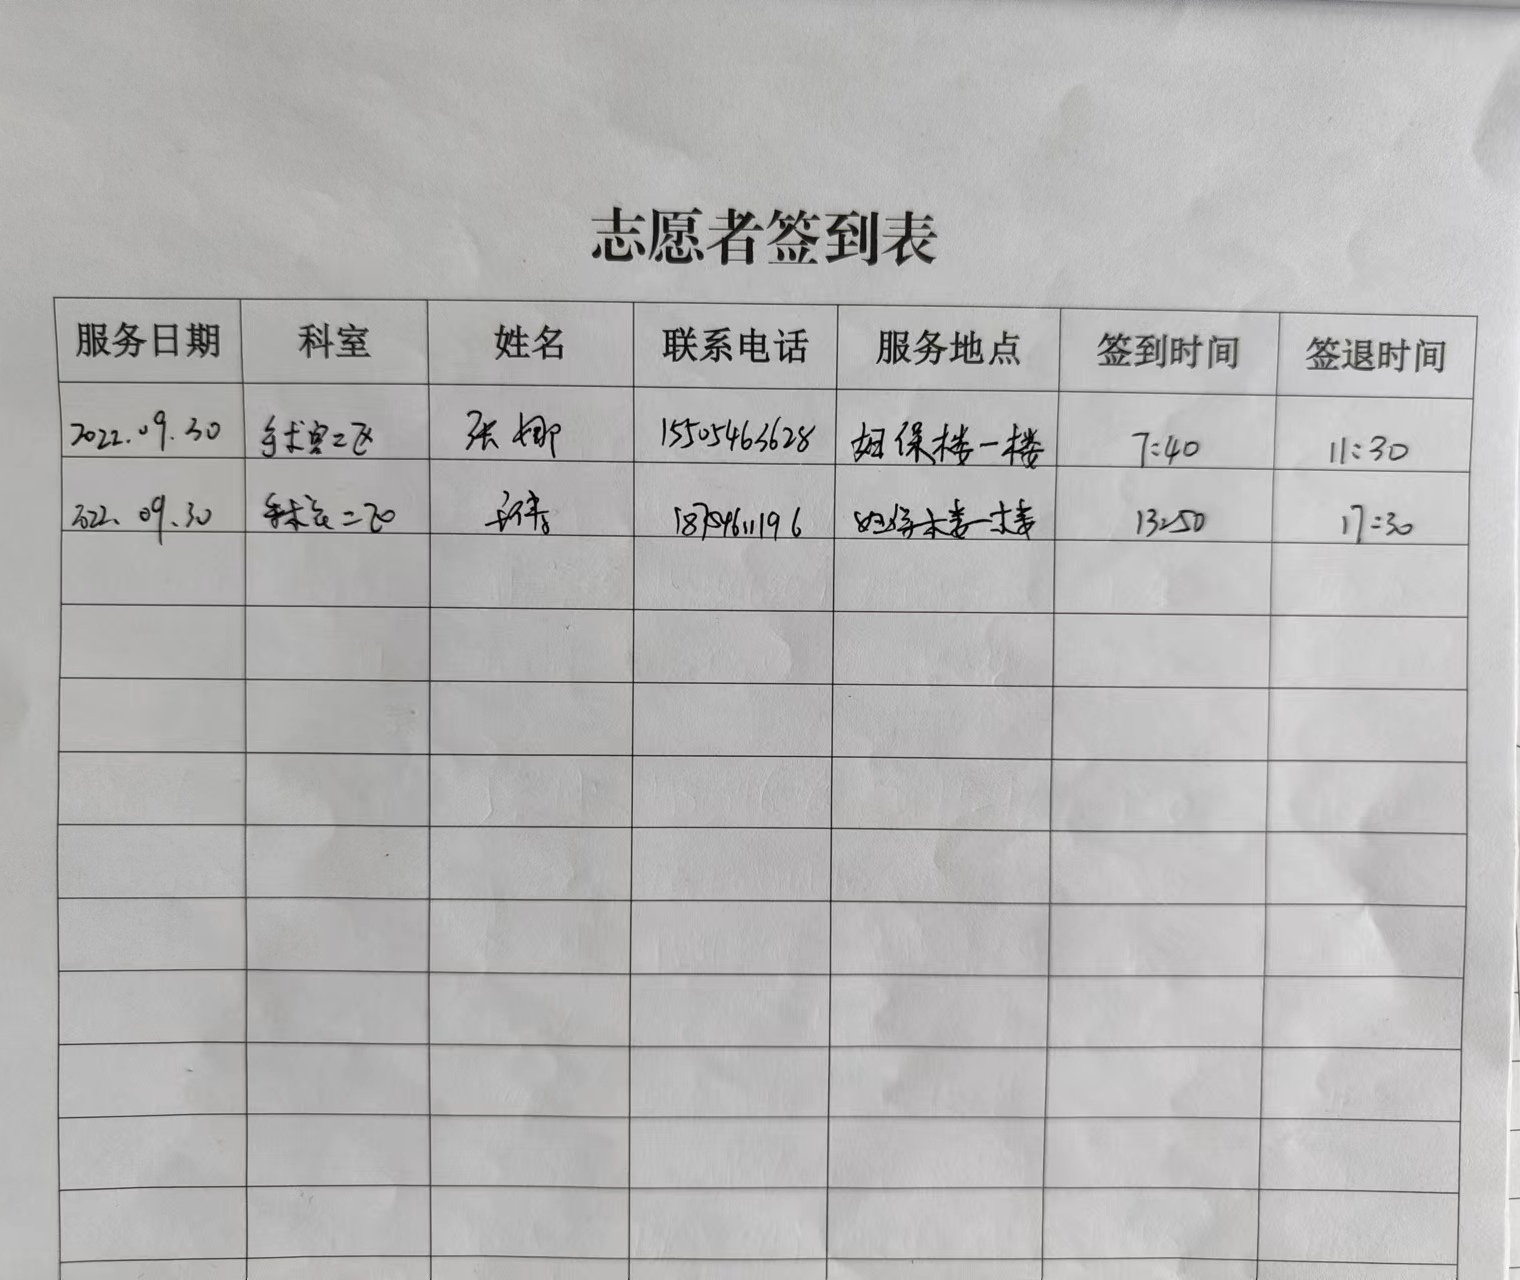 志愿者签到表
服务日期 科室 姓名 联系电话 服务地点 签到时间 签退时间
2022.09.30 手术室二区 张娜 15505463628 妇保楼一楼 7:40 11:30
2022.09.30 手术室二区 18754611196 妇保楼一楼 13:50 17:30